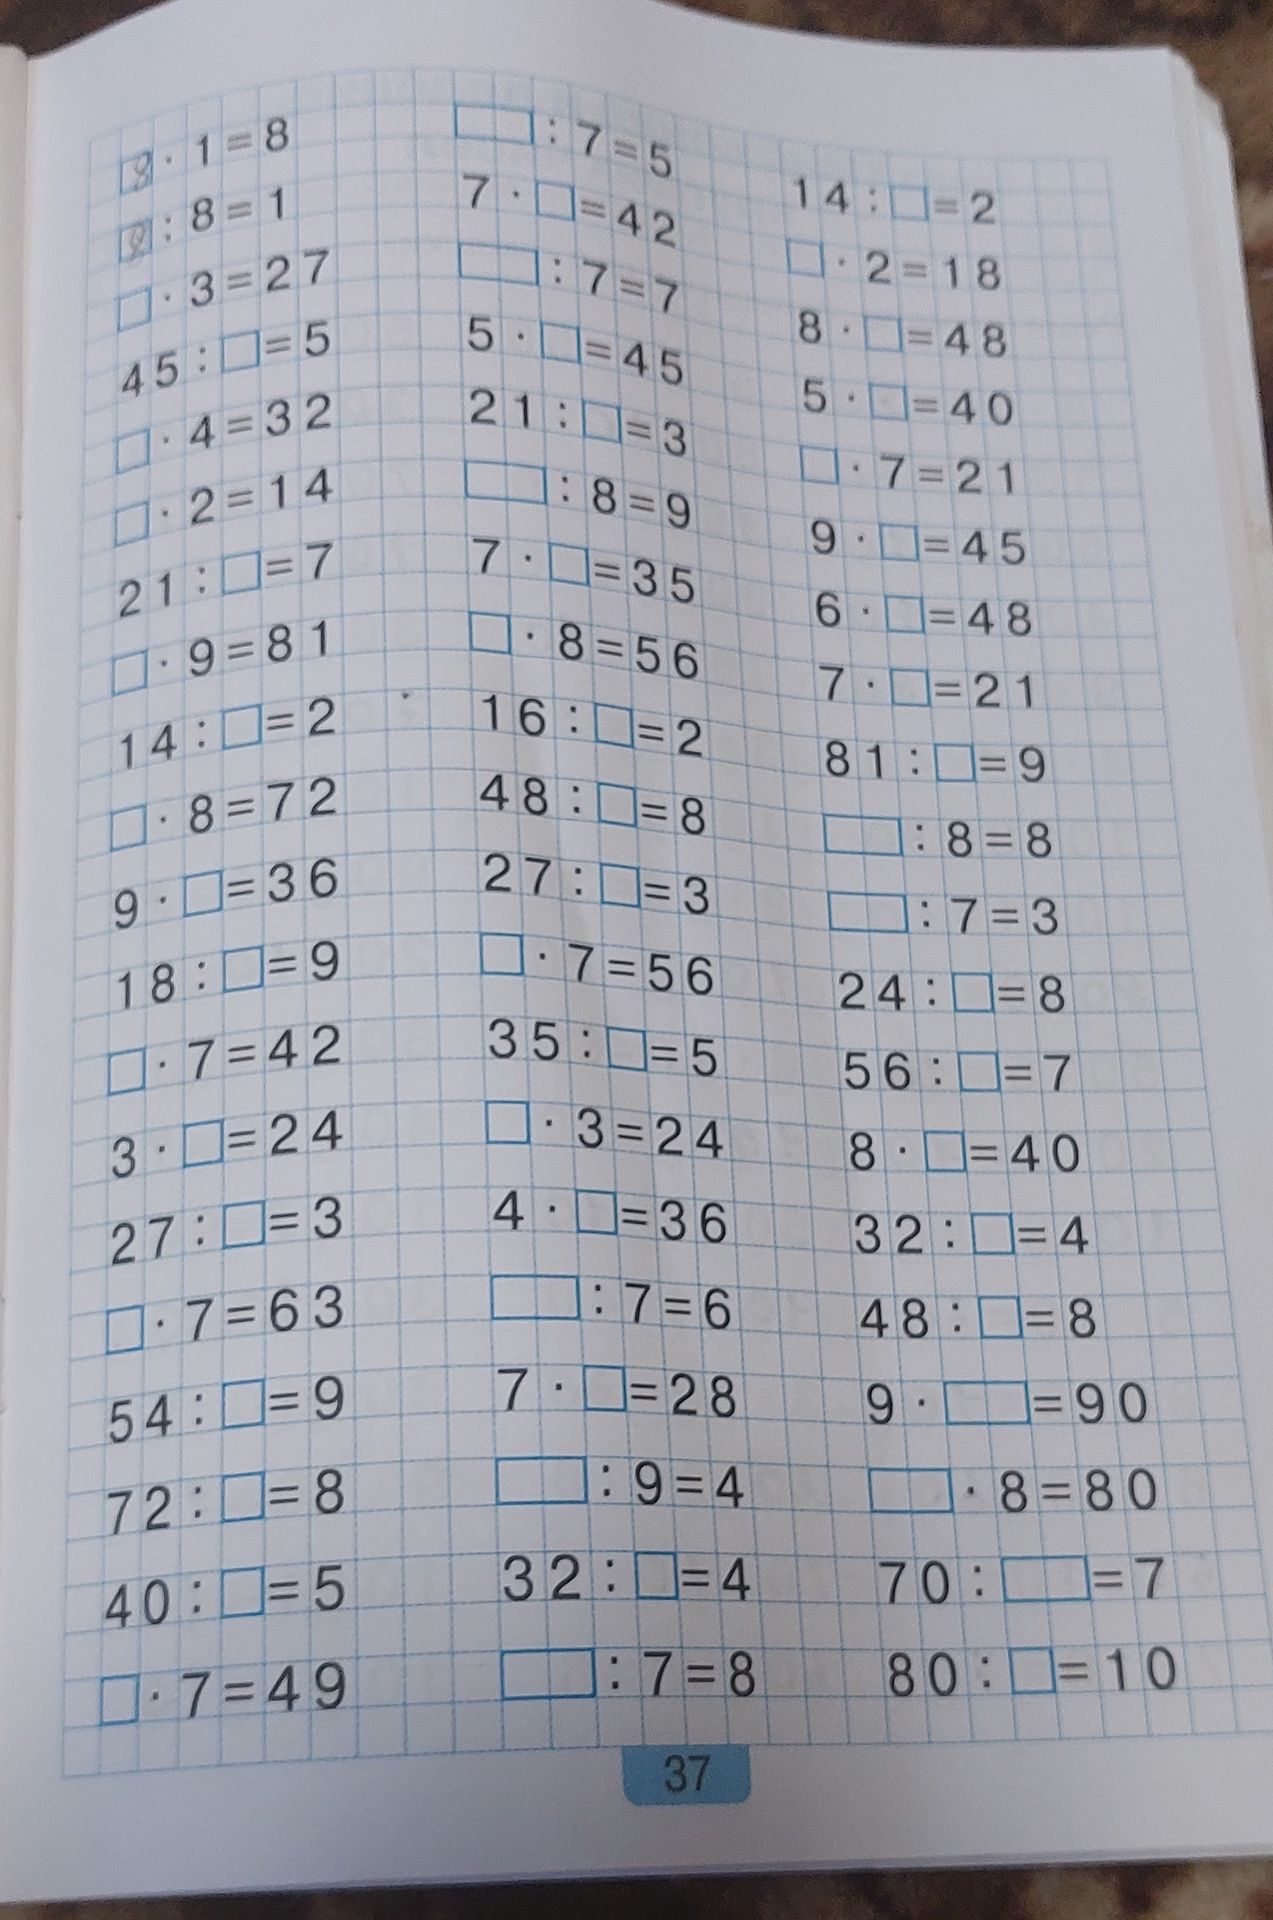 8 · 1 = 8
8 : 8 = 1
□ · 3 = 27
45 : □ = 5
□ · 4 = 32
□ · 2 = 14
21 : □ = 7
□ · 9 = 81
14 : □ = 2
□ · 8 = 72
9 · □ = 36
18 : □ = 9
□ · 7 = 42
3 · □ = 24
27 : □ = 3
□ · 7 = 63
54 : □ = 9
72 : □ = 8
40 : □ = 5
□ · 7 = 49
□ : 7 = 5
7 · □ = 42
□ : 7 = 7
5 · □ = 45
21 : □ = 3
□ : 8 = 9
7 · □ = 35
□ · 8 = 56
16 : □ = 2
48 : □ = 8
27 : □ = 3
□ · 7 = 56
35 : □ = 5
□ · 3 = 24
4 · □ = 36
□ : 7 = 6
7 · □ = 28
□ : 9 = 4
32 : □ = 4
□ : 7 = 8
14 : □ = 2
□ · 2 = 18
8 · □ = 48
5 · □ = 40
□ · 7 = 21
9 · □ = 45
6 · □ = 48
7 · □ = 21
81 : □ = 9
□ : 8 = 8
□ : 7 = 3
24 : □ = 8
56 : □ = 7
8 · □ = 40
32 : □ = 4
48 : □ = 8
9 · □ = 90
□ · 8 = 80
70 : □ = 7
80 : □ = 10
37